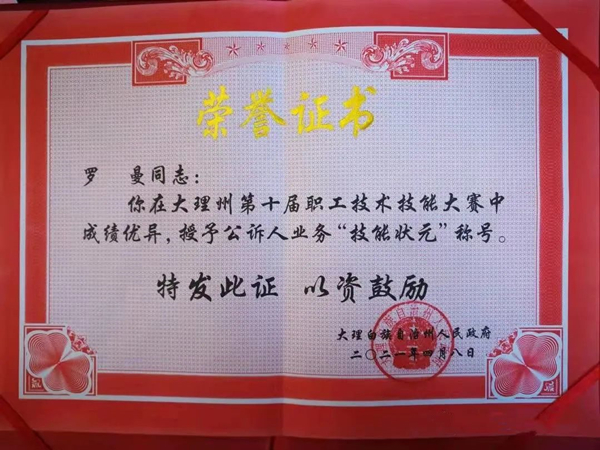 荣誉证书
罗 曼同志:
你在大理州第十届职工技术技能大赛中
成绩优异,授予公诉人业务“技能状元”称号。
特发此证 以资鼓励
大理白族自治州人民政府
二〇二一年四月八日